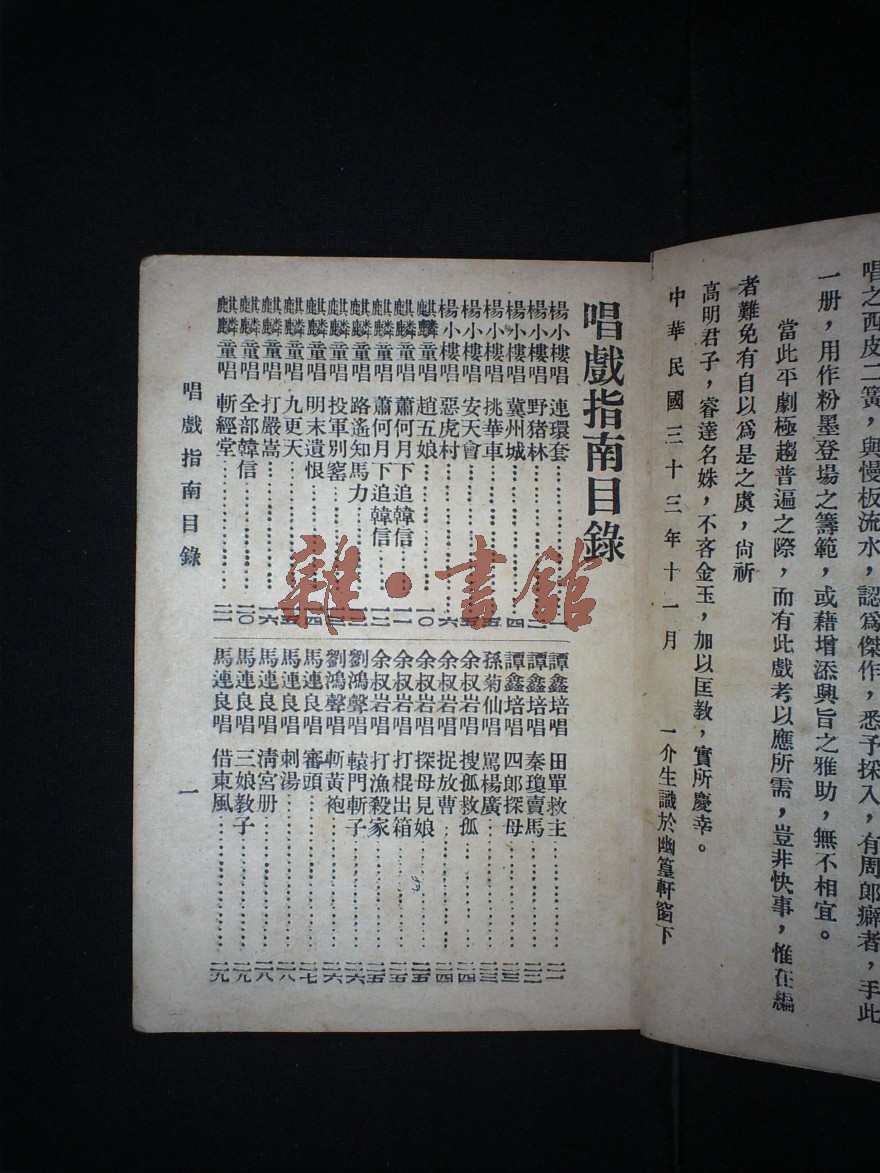 唱之西皮二簧，與慢板流水，認爲傑作，悉予採入，有周郎癖者，手此
一册，用作粉墨登場之籌範，或藉增添興旨之雅助，無不相宜。
當此平劇極趨普遍之際，而有此戲考以應所需，豈非快事，惟在編
者難免有自以爲是之虞，尙祈
高明君子，睿達名姝，不吝金玉，加以匡教，實所慶幸。
中華民國三十三年十一月　一介生識於幽篁軒窗下
唱戲指南目錄
楊小樓唱 連環套…………一
楊小樓唱 野猪林…………
楊小樓唱 冀州城…………四
楊小樓唱 挑華車…………
楊小樓唱 安天會…………
楊小樓唱 惡虎村…………六
麒麟童唱 趙五娘…………一〇
麒麟童唱 蕭何月下追韓信…………一一
麒麟童唱 蕭何月下追韓信…………
麒麟童唱 路遙知馬力…………
麒麟童唱 投軍別窰…………
麒麟童唱 明末遺恨…………
麒麟童唱 九更天…………
麒麟童唱 打嚴嵩…………一六
麒麟童唱 全部韓信…………二〇
麒麟童唱 斬經堂…………二一
譚鑫培唱 田單救主…………
譚鑫培唱 秦瓊賣馬…………二二
譚鑫培唱 四郎探母…………二三
孫菊仙唱 罵楊廣…………二三
余叔岩唱 搜孤救孤…………二四
余叔岩唱 捉放曹…………二四
余叔岩唱 探母見娘…………二四
余叔岩唱 打棍出箱…………二五
余叔岩唱 打漁殺家…………二五
劉鴻聲唱 轅門斬子…………二六
劉鴻聲唱 斬黃袍…………二六
馬連良唱 審頭…………二七
馬連良唱 刺湯…………二八
馬連良唱 清宮册…………二八
馬連良唱 三娘教子…………二九
馬連良唱 借東風…………二九
唱戲指南目錄
一
雜·書館